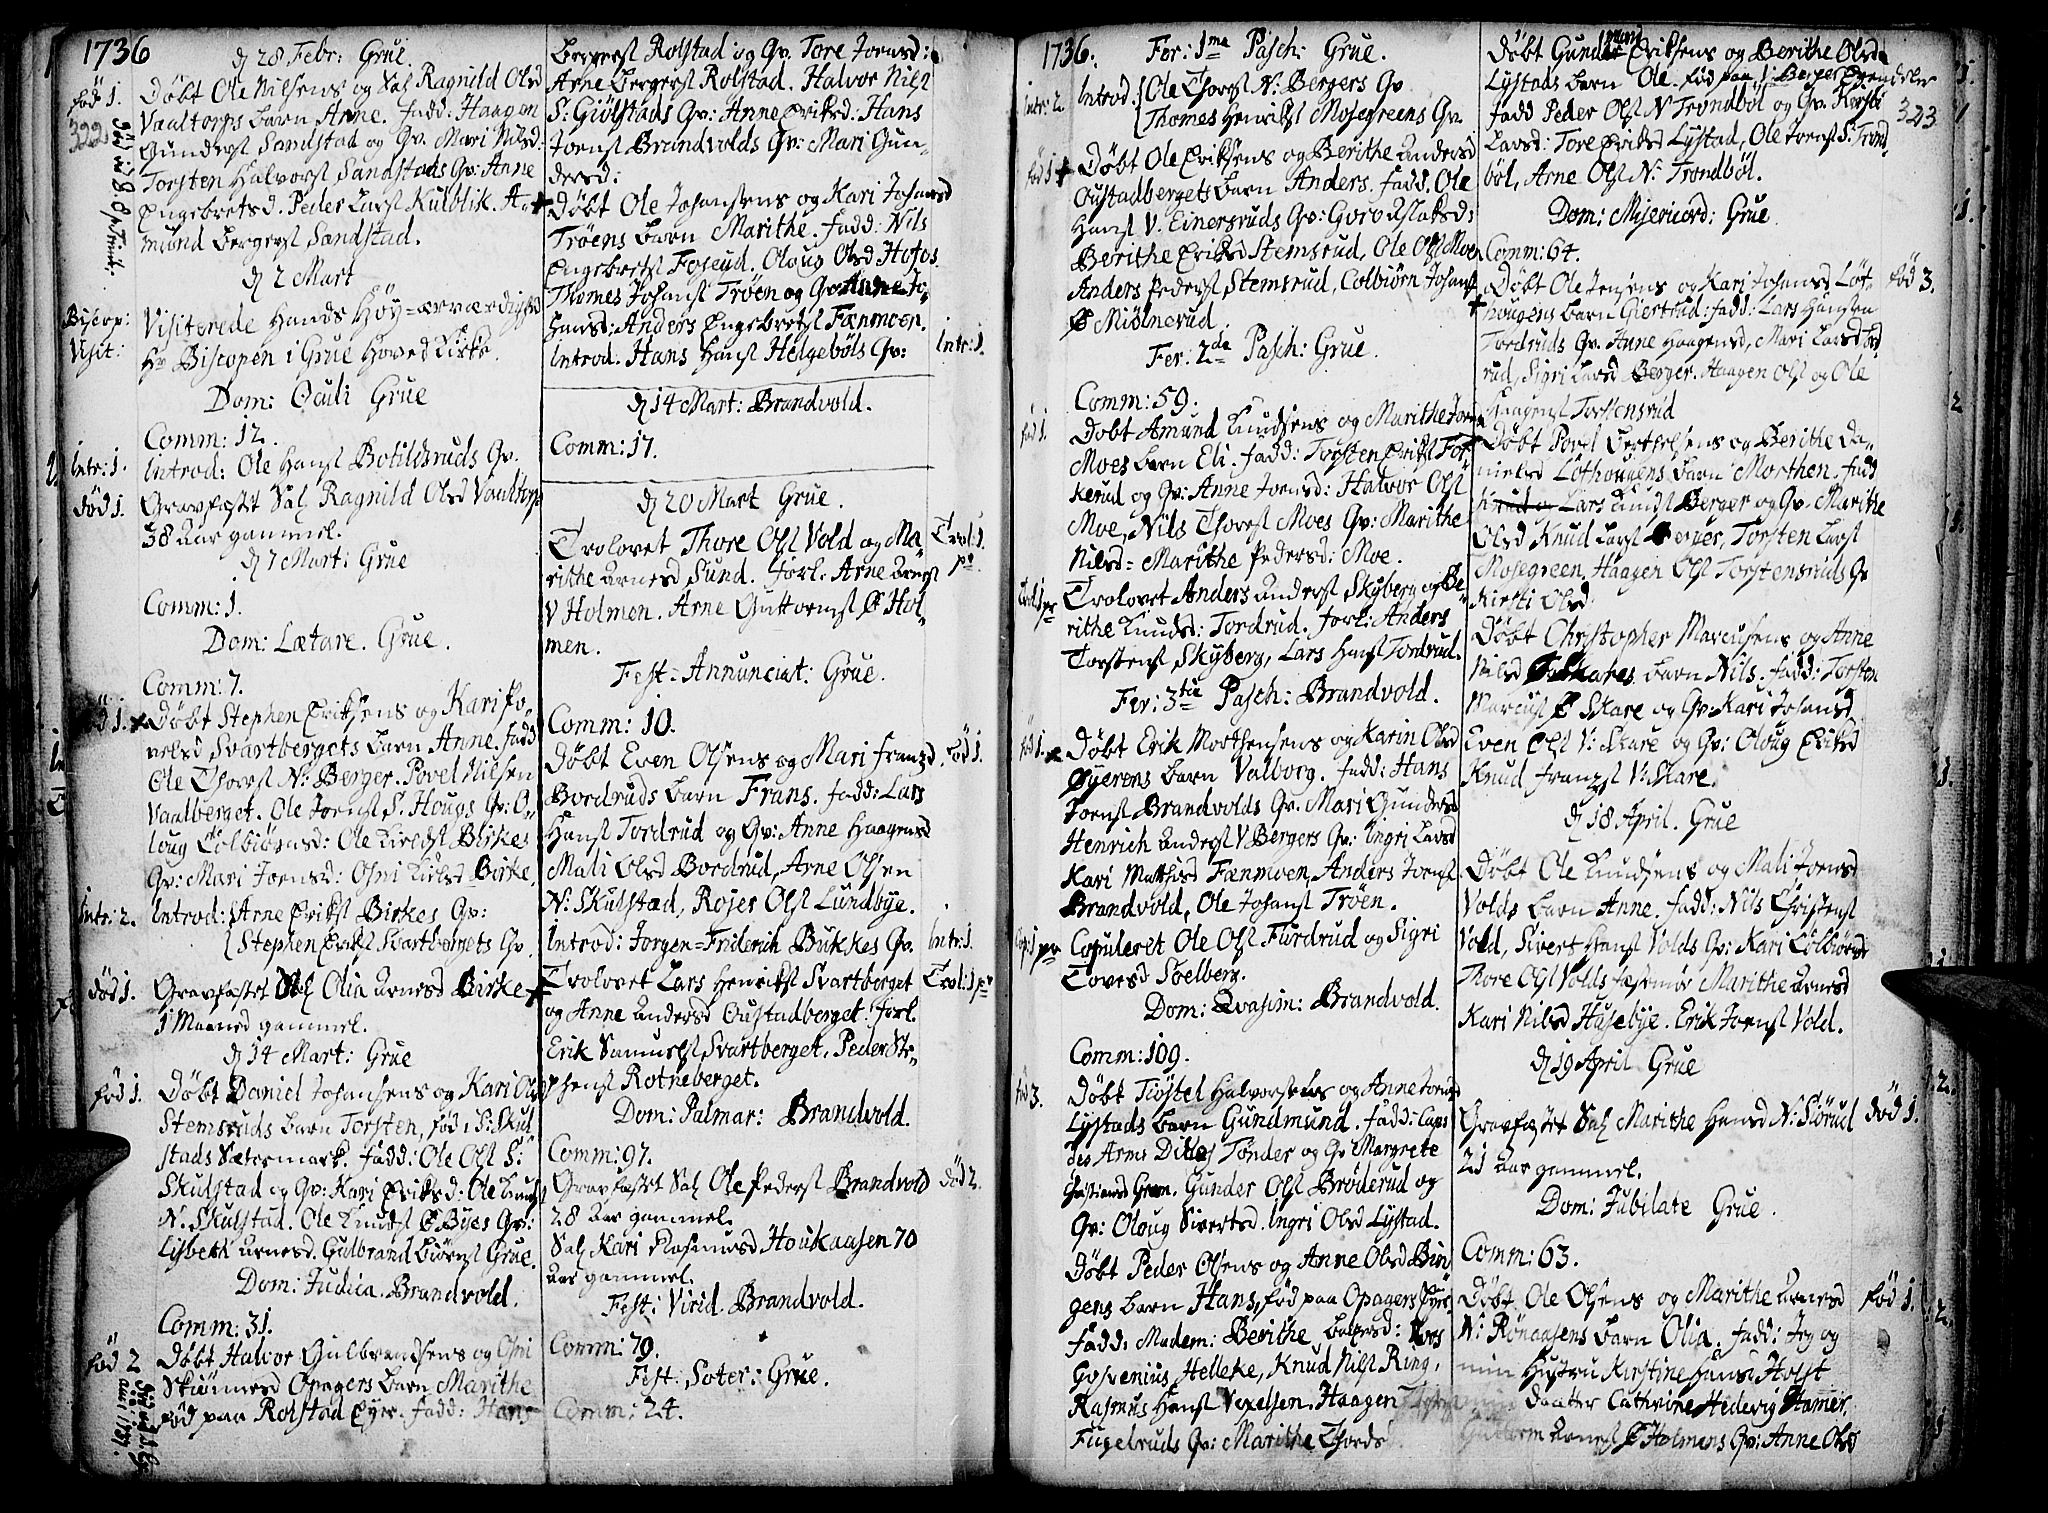 1736
d 28 Febr: Grue.
född 1.
Döbt Ole Nilsens og Sal Ragnild Olsd
Vaaltorps barn Arne. fadd: Haagen
322
Gunders Sandstad og Qv. Mari Nilsd:
Torsten Halvors Sandstads Qv: Anne
Engebretsd. Peder Lars Kulblik. A-
mund bergers Sandstad.
d 2 Mart
Biscop: Visit:
Visiterede Hands Höy-ærværdighed
Hr Biscopen i Grue Hoved Kirke.
Dom: Oculi Grue
Comm: 12.
Intr: 1.
Introd: Ole Hans Botildsruds Qv.
död 1.
Gravfæstet Sal Ragnild Olsd Vaaltorp
38 aar gammel.
d 7 Mart: Grue
Comm: 1.
Dom: Lætare. Grue.
Comm: 7.
Döbt Stephen Eriksens og Kari Po-
velsd Svartbergets barn Anne. fadd
Ole Thors N: Berger. Povel Nilsen
Vaalberget. Ole Joens S. Hougs Qv: O-
loug Colbiörnsd: Ole Kields Birkes
Qv: Mari Joensd: Osni Kielsd Birke.
Intr: 2.
Introd: Arne Eriks Birkes Qv:
Stephen Eriks Svartbergets Qv.
död 1.
Gravfæstet Sal Olia Arnesd Birke
1 Maaned gammel.
d 14 Mart: Grue
föd 1.
Döbt Daniel Johansens og Kari Olsd
Stemsruds barn Torsten, föd i S: Skul
stads Sætermark. fadd: Ole Ols S:
Skulstad og Qv: Kari Eriksd: Ole Knuds
N: Skulstad. Ole Knuds Ø Byes Qv:
Lisbeth Arnesd. Gulbrand Biörns Grue.
Dom: Judica. Brandvold.
Comm: 31.
föd 2
Döbt Halvor Gulbrandsens og Osni
Skiönnesd Opagers barn Marithe
föd paa Rolstad Eyer. fadd: Hans
bergers Rolstad og Qv. Tore Joensd:
Arne bergers Rolstad. Halvor Nils
S: Giölstads Qv: Anne Eriksd: Hans
Joens Brandvolds Qv: Mari Gun-
dersd:
Döbt Ole Johansens og Kari Johansd
Tröens barn Marithe. fadd: Nils
Engebrets Foseud. Oloug Olsd Hofos.
Thomes Johans Tröen og Qv Anne Jo-
hansd: Anders Engebrets Fænmoen.
Introd. Hans Hans Helgeböls Qv:
Intr: 1.
d 14 Mart: Brandvold.
Comm: 17.
d 20 Mart Grue.
Trolovet Thore Ols Vold og Ma-
Trol: 1. pr
rithe Arnesd Sund. forl: Arne Arnes
V Holmen. Arne Guttorms Ø Hol-
men.
Fest: Annunciat: Grue.
Comm: 10.
Döbt Even Olsens og Mari Franzd
föd 1.
Bordruds barn Frans. fadd: Lars
Hans Tordrud og Qv: Anne Haagensd
Mali Olsd Bordrud, Arne Olsen
N: Skulstad, Rojer Ols Lundbye.
Introd: Jorgen Friderich Bukkes Qv.
Intr: 1.
Trolovet Lars Henriks Svartberget
Trol: 1 pr
og Anne Andersd Oustadberget. forl.
Erik Samuels Svartberget. Peder Ste-
phens Rotneberget.
Dom: Palmar: Brandvold.
Comm: 97.
Gravfæstet Sal Ole Peders Brandvold
död 2.
28 aar gammel.
Sal Kari Rasmusd Houkaasen 70
aar gammel.
Fest: Virid. Brandvold.
Comm: 79.
Fest: Soter: Grue.
Comm: 24.
1736.
Fer: 1ma Pasch: Grue.
Intr: 2.
Introd: Ole Thors N: Bergers Qv
Thomes Henriks Mosegreens Qv.
föd 1
Döbt Ole Eriksens og Berithe Andersd
Oustadbergets barn Anders. fadd. Ole
Hans V. Einersruds Qv: Goro Aslaksd:
Berithe Eriksd Stemsrud, Ole Ols Moen
Anders Peders Stemsrud, Colbiörn Johans
Ø Miölnerud.
Fer: 2da Pasch: Grue.
Comm: 59.
föd 1.
Döbt Amund Knudsens og Marithe Joens
Moes barn Eli. fadd: Torsten Eriks For-
kerud og Qv: Anne Joensd: Halvor Ols
Moe, Nils Thores Moes Qv: Marithe
Nilsd: Marithe Pedersd: Moe.
Trol: 1 pr
Trolovet Anders Anders Skyberg og Be-
rithe Knudsd: Tordrud. forl: Anders
Torstens Skyberg, Lars Hans Tordrud.
Fer: 3tia Pasch: Brandvold.
föd 1.
Döbt Erik Morthensens og Karin Olsd
Öyerens barn Valborg. fadd: Hans
Joens Brandvolds Qv. Mari Gundersd
Henrich Anders V Bergers Qv: Ingri Larsd
Kari Mathisd Fænmoen, Anders Joens
Brandvold, Ole Johans Tröen.
Cop: 1 pr
Copuleret Ole Ols Furdrud og Sigri
Tovesd Soelberg.
Dom: Qvasim: Brandvold.
Comm: 109.
föd 3.
Döbt Tiöstel Halvorsens og Anne
Lystads barn Gundmund. fadd: Capi
des Arms Ditles Tönder og Qv Margrete
Christiansd Gram. Gunder Ols Bröderud og
Qv: Oloug Sivertsd. Ingri Olsd Lystad.
Döbt Peder Olsens og Anne Olsd Bin
gens barn Hans, föd paa Opagers Eyer.
fadd. Madem: Berithe
Gosvenius, Helleke, Knud Nils Ring,
Rasmus Hans Vexelsen. Haagen
Fugelruds Qv: Marithe Thords
Döbt Gunder Eriksens og Berithe Olsd
Lystads barn Ole. föd paa S: Berger
Fadd Peder Ols N Tröndböl og Qv. Kirsti
323
Larsd: Tore Eriksd Lystad, Ole Joens S: Trönd
böl, Arne Ols N: Tröndböl.
Dom: Misericord: Grue.
Comm: 64.
Döbt Ole Jensens og Kari Johansd Löt-
föd 3.
hougens barn Giertrud: fadd: Lars Hansen
Tordruds Qv. Anne Haagensd, Mari Larsd Tord
rud, Sigri Larsd Berger. Haagen Ols og Ole
Haagens Torstensrud
Döbt Povel Berthelsens og Berithe Da-
nielsd Löthougens barn Morthen. fadd
Lars Knuds Berger og Qv. Marithe
Olsd Knud Lars Berger, Torsten Lars
Mosegreen. Haagen Ols Torstensruds Qv
Kirsti Olsd.
Döbt Christopher Marcusens og Anne
Nilsd Skares barn Nils. fadd: Torsten
Marcus Ø Skare og Qv: Kari Johansd
Even Ols V: Skare og Qv: Oloug Eriksd
Knud Franzs V: Skare.
d 18 April. Grue
Döbt Ole Knudsens og Mali Joensd
Volds barn Anne. fadd: Nils Christens
Vold, Sivert Hans Volds Qv: Kari Colbiörnsd
Thore Ols Volds fæstemöe Marithe Arnesd
Kari Nilsd Husebye. Erik Joens Vold.
d 19 April Grue
Gravfæstet Sal Marithe Hansd N: Sörud
död 1.
21 aar gammel.
Dom: Jubilate Grue.
Comm: 63.
Döbt Ole Olsens og Marithe Arnesd
föd 1.
N: Rönaasens barn Olia. fadd: Jeg og
min Hustru Kirstine Hansd Holst
Daater Cathrine Hedevig Hamer,
Guttorm Arnes Ø Holmens Qv: Anne Olsd